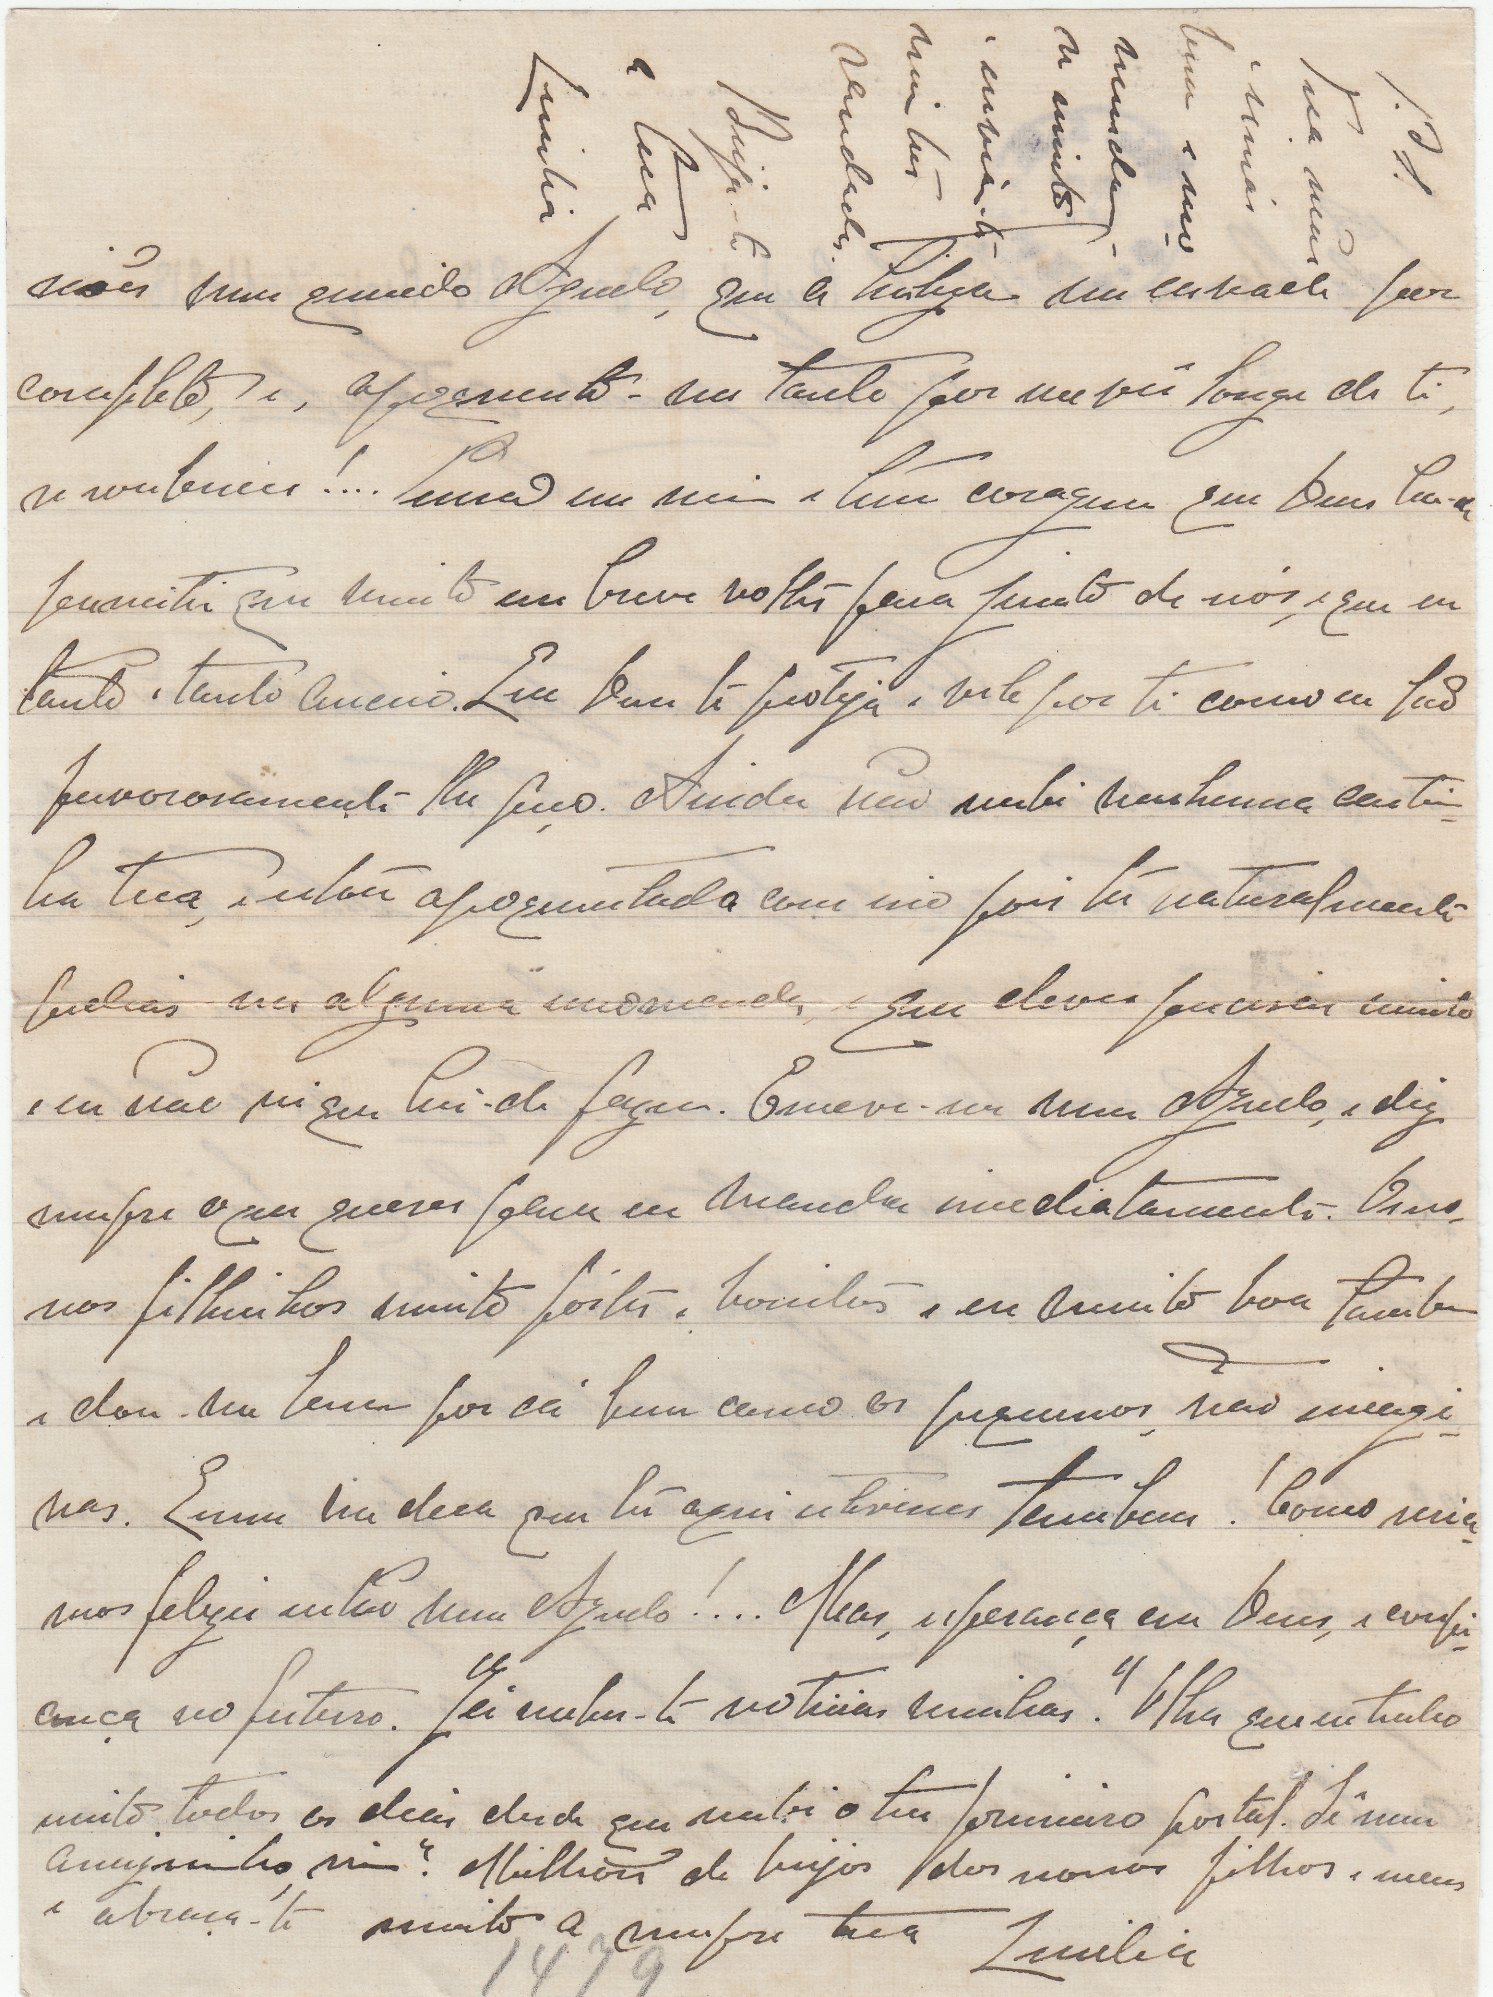 P.S.
Tua mãe
e irmãs
bem e re-
commendam-
se muito
e enviam-te
muitas
saudades.
Beija-te
a tua
Emilia
nões meu querido Agnelo, que a   por
completo, e, apoquento-me tanto por me vêr longe de ti,
se soubesses!.... Pensa em mim e tem coragem que Deus ha-de
permitir que muito em breve voltes para junto de nós, e que eu
tanto e tanto anceio. Que Deus te proteja e vele por ti como eu tão
fervorosamente lhe peço. Ainda não recebi nenhuma carti-
nha tua, e estou apoquentada com isso pois tu naturalmente
pedias-me alguma encomenda, e que deves precisar muito
e eu não sei que hei-de fazer. Escreve-me meu Agnelo, e diz
sempre o que queres para eu mandar imediatamente. Os nos-
sos filhinhos muito fortes e bonitos e eu muito boa tambem
e dou-me bem por cá bem como os pequenos, não imagi-
nas. Quem me dera que tu aqui estivesses tambem! Como seria-
mos felizes então meu Agnelo!... Mas, esperança em Deus, e confi-
ança no futuro. "Já recebes-te noticias minhas?" Olha que eu tenho
escrito todos os dias desde que recebi o teu primeiro postal. Lê meu
amiguinho, sim? Milhões de beijos dos nossos filhos e meus
e abraça-te muito a sempre tua Emilia
1479